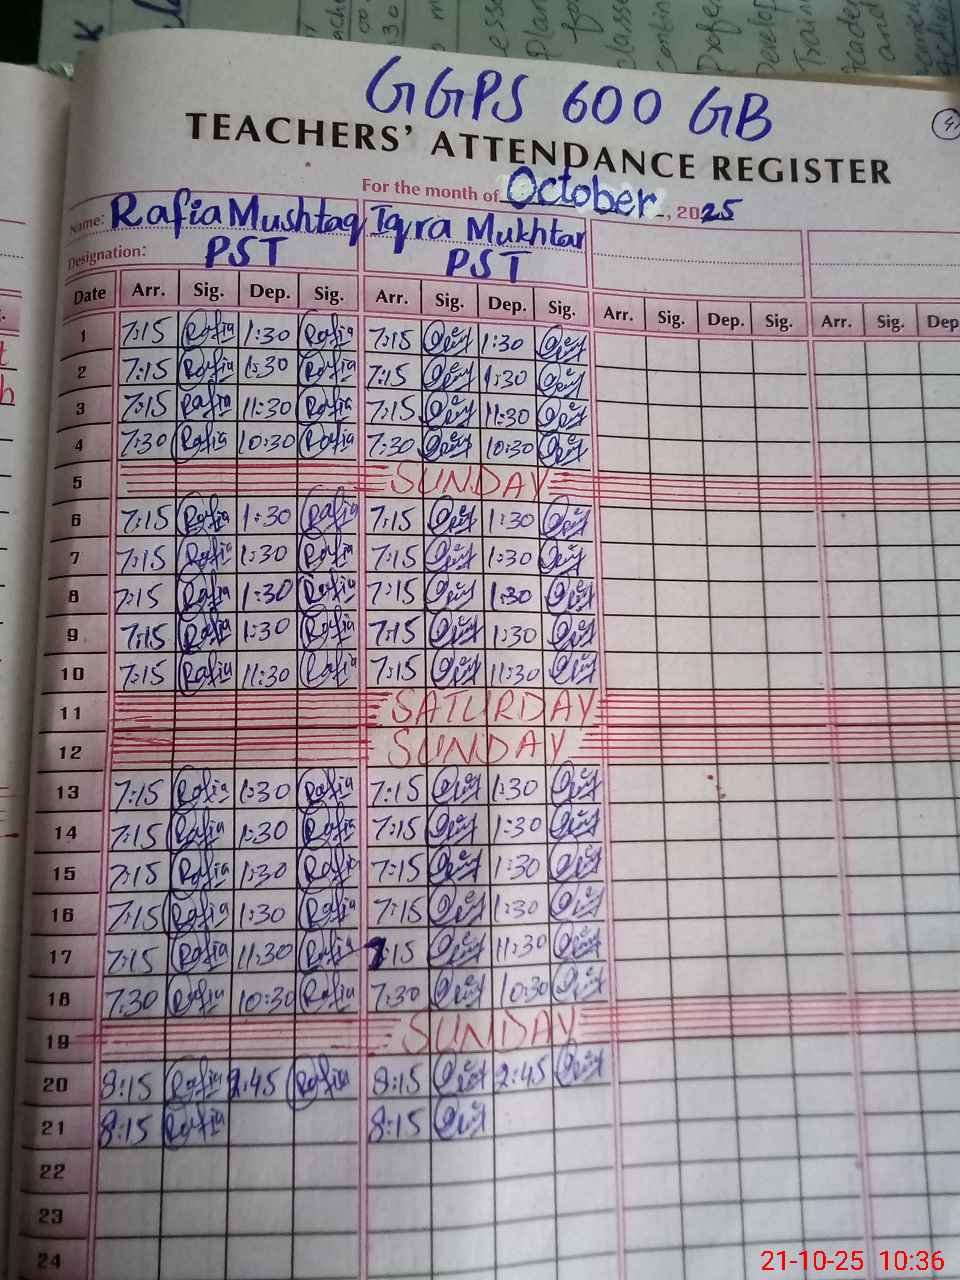 GGPS 600 GB
TEACHERS' ATTENDANCE REGISTER
For the month of October, 2025
Name: Rafia Mushtaq Iqra Mukhtar
Designation: PST PST
Date Arr. Sig. Dep. Sig. Arr. Sig. Dep. Sig. Arr. Sig. Dep. Sig. Arr. Sig. Dep
1 7:15 Rafia 1:30 Rafia 7:15 1:30
2 7:15 Rafia 1:30 Rafia 7:15 1:30
3 7:15 Rafia 11:30 Rafia 7:15 11:30
4 7:30 Rafia 10:30 Rafia 7:30 10:30
5 SUNDAY
6 7:15 Rafia 1:30 Rafia 7:15 1:30
7 7:15 Rafia 1:30 Rafia 7:15 1:30
8 7:15 Rafia 1:30 Rafia 7:15 1:30
9 7:15 Rafia 1:30 Rafia 7:15 1:30
10 7:15 Rafia 11:30 Rafia 7:15 11:30
11 SATURDAY
12 SUNDAY
13 7:15 Rafia 1:30 Rafia 7:15 1:30
14 7:15 Rafia 1:30 Rafia 7:15 1:30
15 7:15 Rafia 1:30 Rafia 7:15 1:30
16 7:15 Rafia 1:30 Rafia 7:15 1:30
17 7:15 Rafia 11:30 Rafia 7:15 11:30
18 7:30 Rafia 10:30 Rafia 7:30 10:30
19 SUNDAY
20 8:15 Rafia 2:45 Rafia 8:15 2:45
21 8:15 Rafia 8:15
22
23
24
21-10-25 10:36